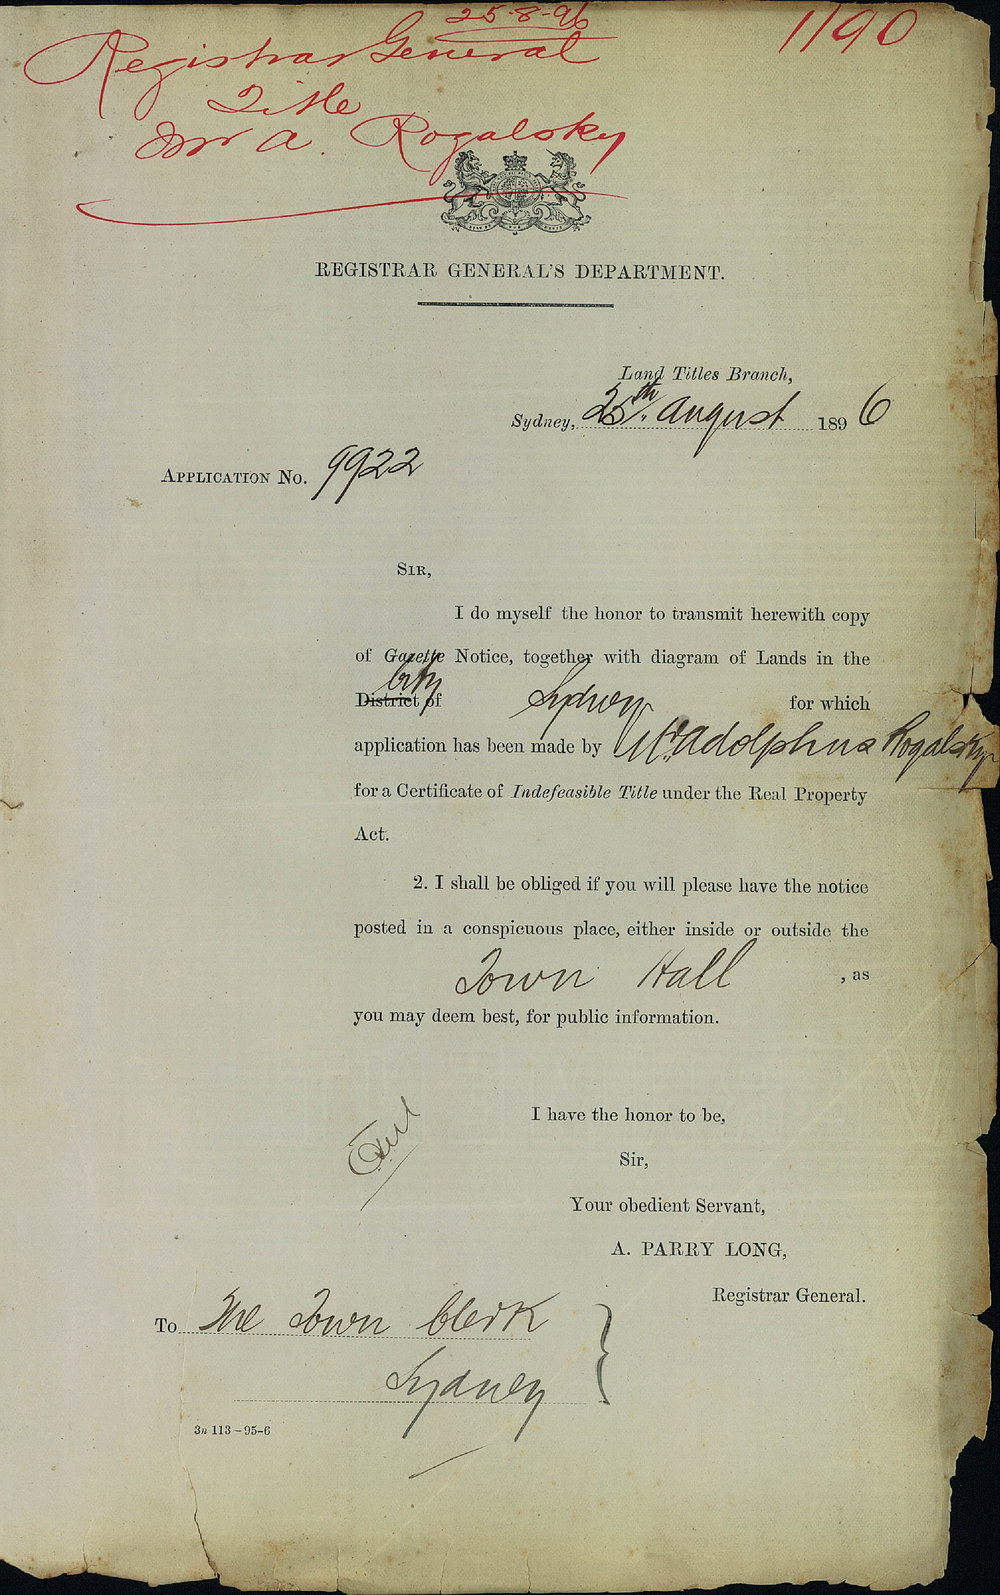 25-8-96
1190
Registrar General
Title
Mr A. Rogalsky
REGISTRAR GENERAL'S DEPARTMENT.
Land Titles Branch,
Sydney, 25th August 1896
APPLICATION No. 9922
SIR,
I do myself the honor to transmit herewith copy
of Gazette Notice, together with diagram of Lands in the
City
District of Sydney for which
application has been made by Mr. Adolphus Rogalsky
for a Certificate of Indefeasible Title under the Real Property
Act.
2. I shall be obliged if you will please have the notice
posted in a conspicuous place, either inside or outside the
Town Hall, as
you may deem best, for public information.
I have the honor to be,
Sir,
Your obedient Servant,
A. PARRY LONG,
Registrar General.
To The Town Clerk
Sydney
3n 113-95-6